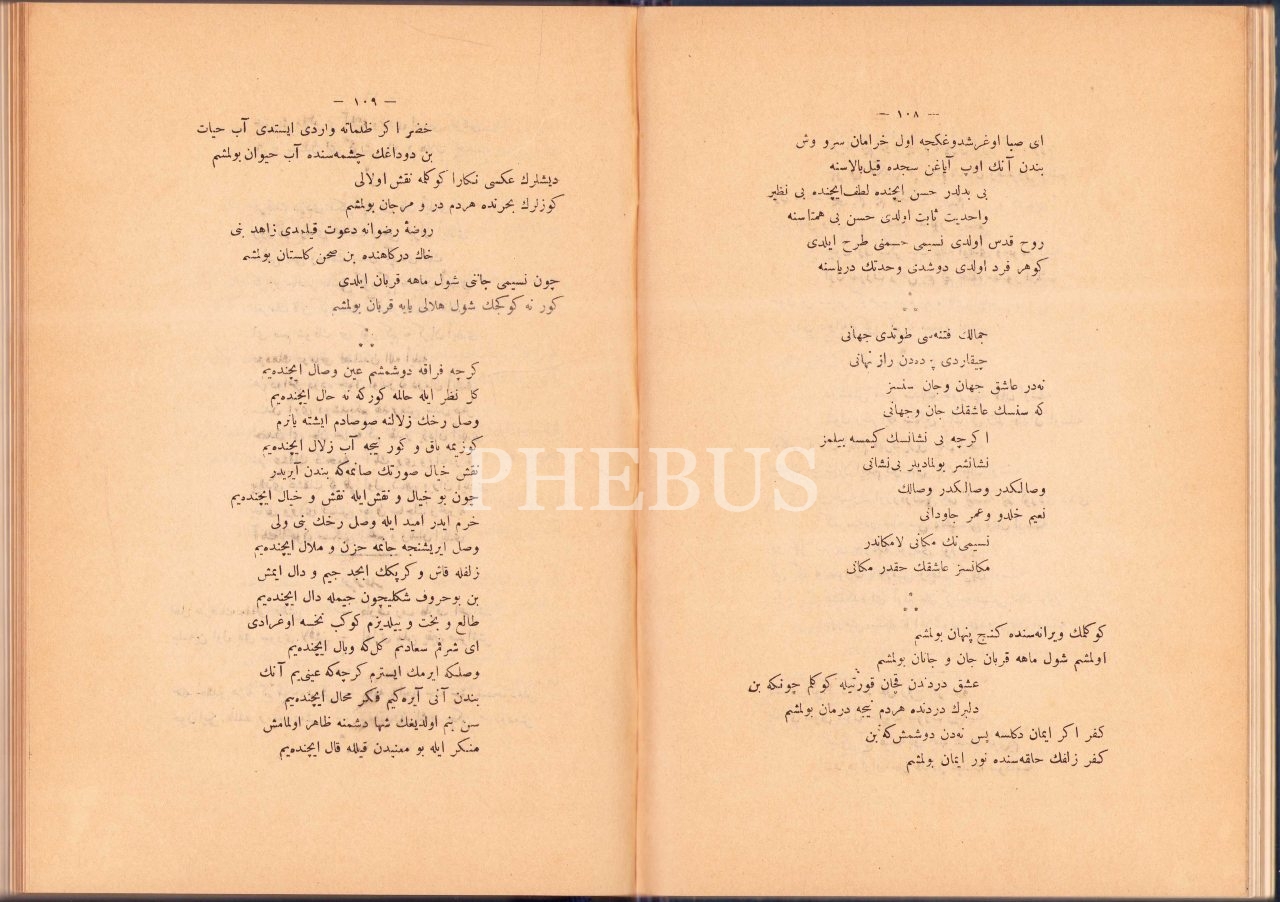 — ١٠٨ —
ای صبا اوغرشدوغكجه اول خرامان سرو وش
بندن آنك اوپ آیاغن سجده قیل بالاسنه
بی بدلدر حسن ایچنده لطف ایچنده بی نظیر
واحدیت ثابت اولدی حسن بی همتاسنه
روح قدس اولدی نسیمی جسمنی طرح ایلدی
كوهر فرد اولدی دوشدی وحدتك دریاسنه
جمالك فتنه‌سی طوتدی جهانی
چیقاردی پرده‌دن راز نهانی
نه‌در عاشق جهان وجان سنسز
كه سنسك عاشقك جان وجهانی
اكرچه بی نشانسك كیمسه بیلمز
نشانسز بولمادیلر بی نشانی
وصالكدر وصالكدر وصالك
نعیم خلدو وعمر جاودانی
نسیمی‌نك مكانی لامكاندر
مكانسز عاشقك حقدر مكانی
كوكلك ویرانه‌سنده كنج پنهان بولمشم
اولمشم شول ماهه قربان جان و جانان بولمشم
عشق دردندن قچان قورتیله كوكلم چونكه بن
دلبرك دردنده هردم نیجه درمان بولمشم
كفر اكر ایمان دكلسه پس نه‌دن دوشمش كه بن
كفر زلفك حلقه‌سنده نور ایمان بولمشم
— ١٠٩ —
خضر اكر ظلماته واردی ایستدی آب حیات
بن دوداغك چشمه‌سنده آب حیوان بولمشم
دیشلرك عكسی نكارا كوكلمه نقش اولالی
كوزلرك بحرنده هردم در و مرجان بولمشم
روضهٔ رضوانه دعوت قیلمدی زاهد بنی
خاك دركاهنده بن صحن كلستان بولمشم
چون نسیمی جاننی شول ماهه قربان ایلدی
كور نه كوكجك شول هلالی یایه قربان بولمشم
كرچه فراقه دوشمشم عین وصال ایچنده‌یم
كل نظر ایله حالمه كورکه نه حال ایچنده‌یم
وصل رخك زلالنه صوصادم ایشته یانرم
كوزیمه باق و كور نیجه آب زلال ایچنده‌یم
نقش خیال صورتك صانمه‌كه بندن آیریدر
چون بو خیال و نقش ایله نقش و خیال ایچنده‌یم
خرم ایدر امید ایله وصل رخك بنی ولی
وصل ایریشنجه جانمه حزن و ملال ایچنده‌یم
زلفله قاش و كرپكك ابجد جیم و دال ایمش
بن بوحروف شكلیچون جیمله دال ایچنده‌یم
طالع و بخت و ییلدیزم كوكب نحسه اوغرادی
ای شرفم سعادتم كل‌كه وبال ایچنده‌یم
وصلكه ایرمك ایسترم كرچه‌كه عینی‌یم آنك
بندن آنی آیره‌كیم فكر محال ایچنده‌یم
سن بنم اولدیغك شها دشمنه ظاهر اولمامش
منكر ایله بو معنیدن قیلله قال ایچنده‌یم
PHEBUS